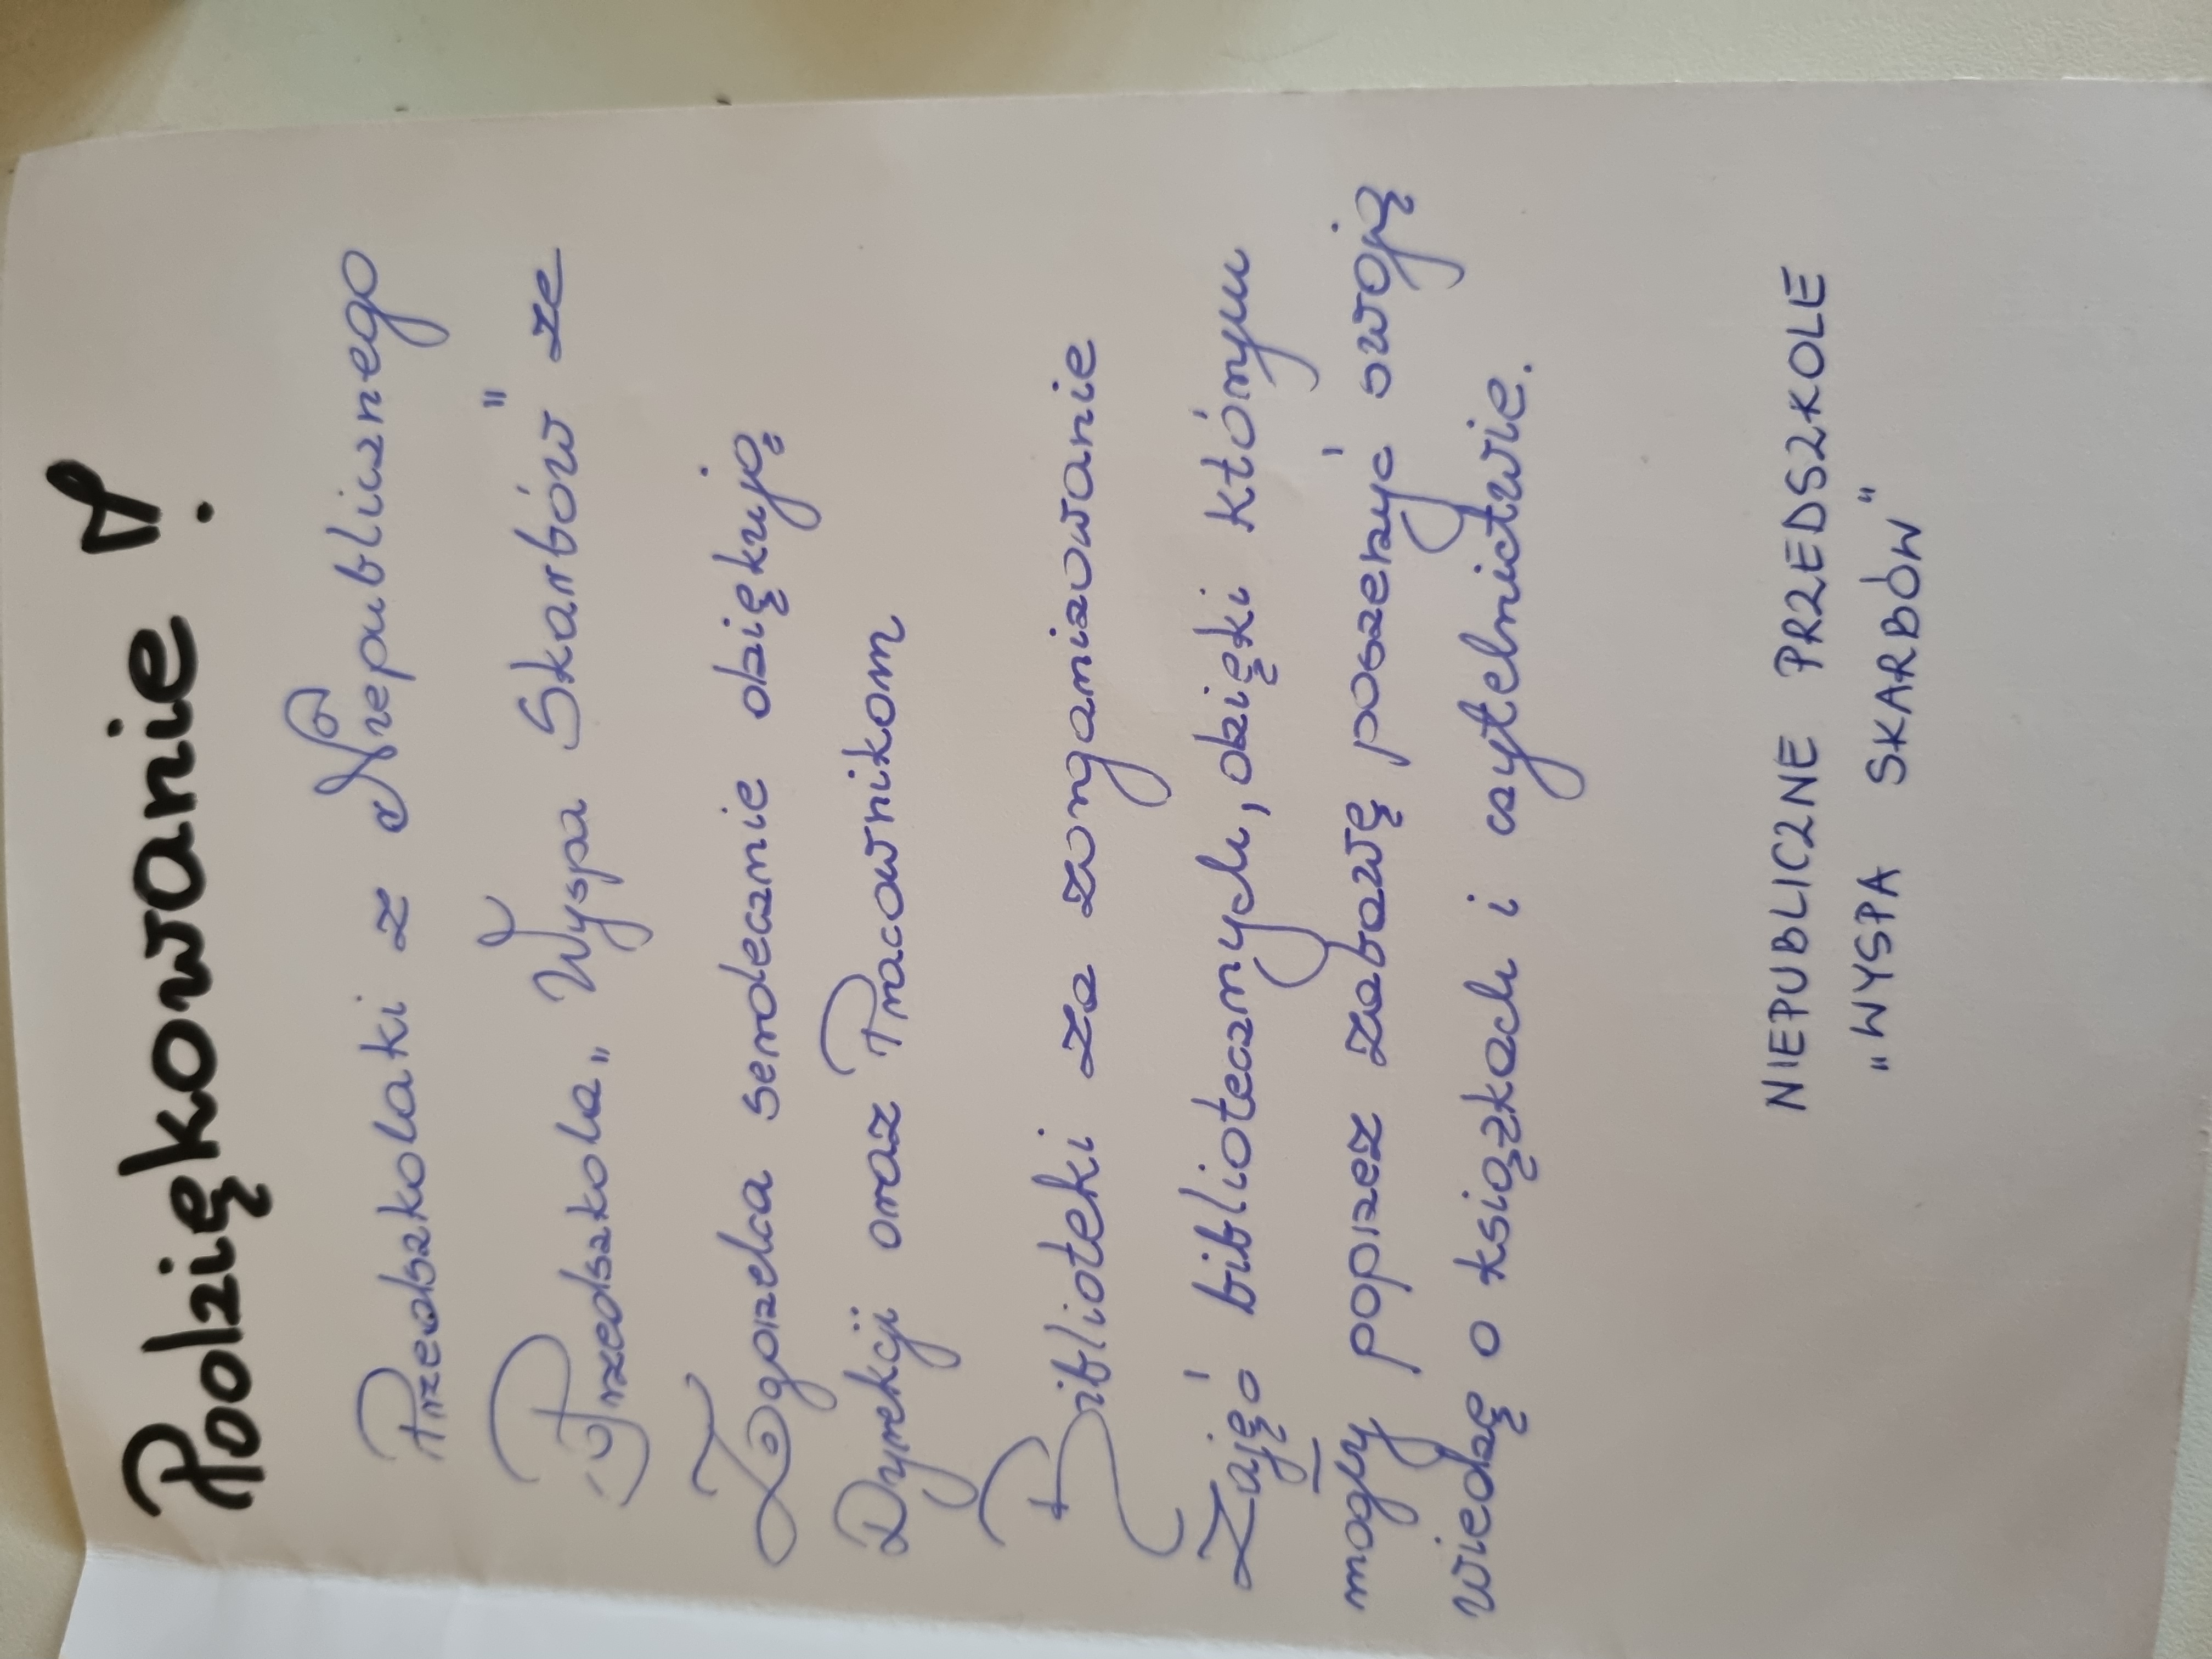 Podziękowanie!
Przedszkolaki z Niepublicznego
Przedszkola „Wyspa Skarbów" ze
Zgorzelca serdecznie dziękują
Dyrekcji oraz Pracownikom
Biblioteki za zorganizowanie
Zajęć bibliotecznych, dzięki którym
mogły poprzez zabawę poszerzyć swoją
wiedzę o książkach i czytelnictwie.
NIEPUBLICZNE PRZEDSZKOLE
„WYSPA SKARBÓW"